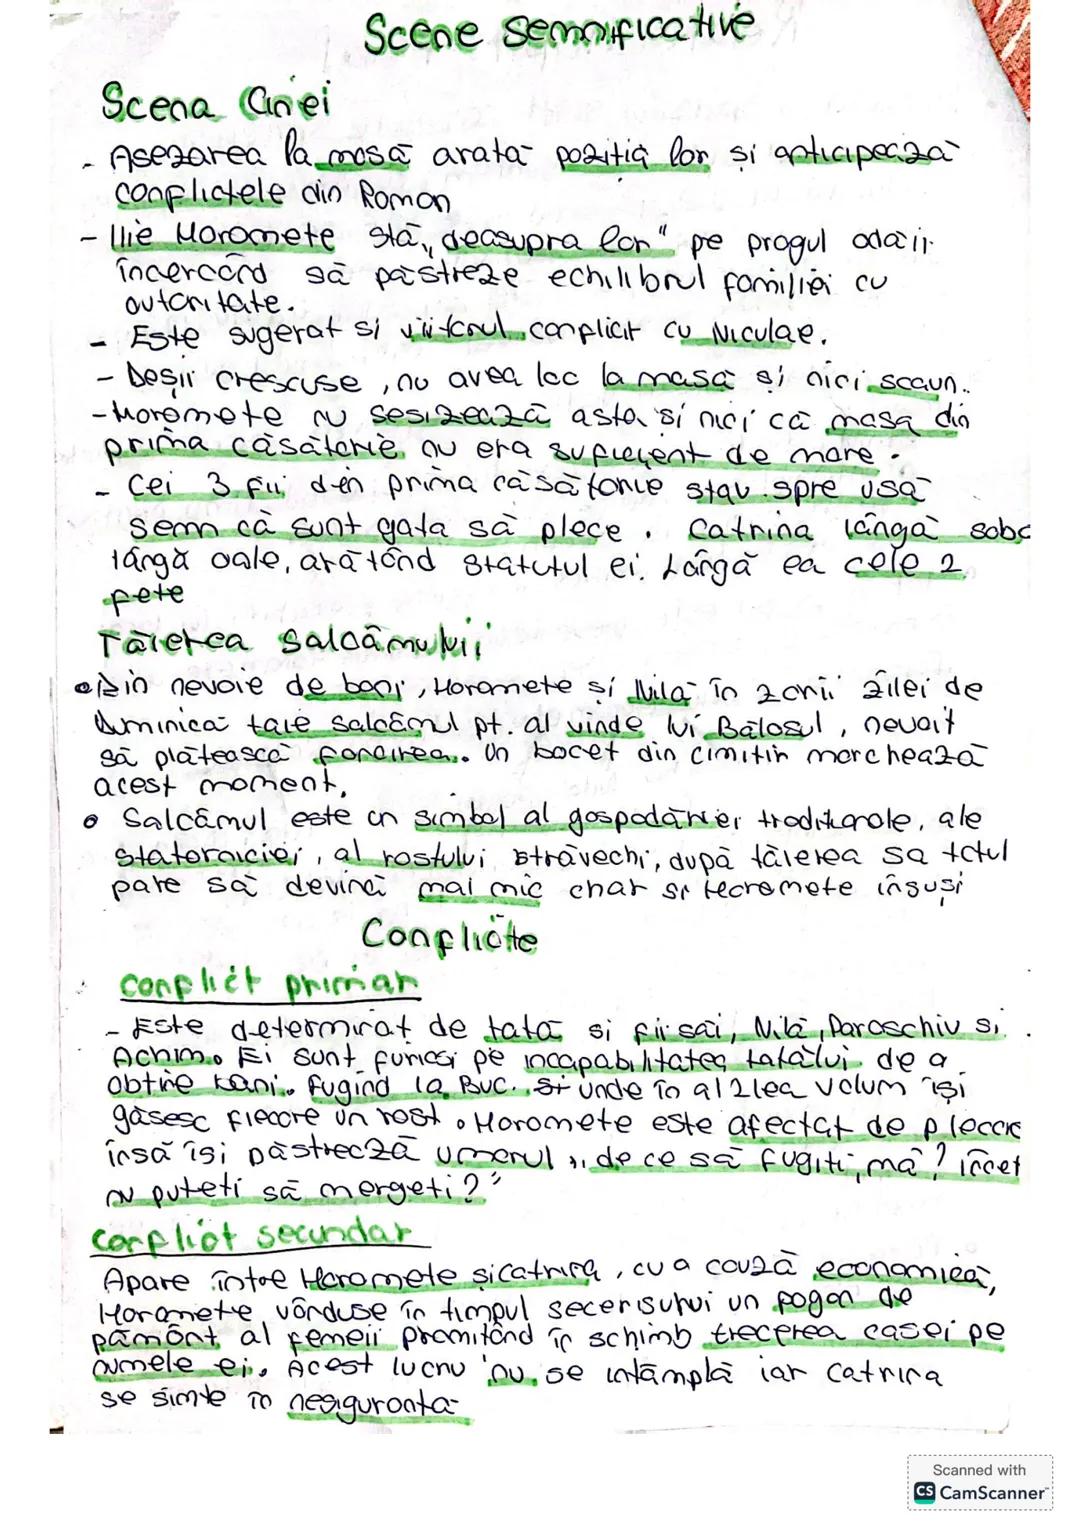 Scene semnificative
Scena Cinei
- Asezarea la masă arată poziția lor și anticipează
conflictele din Roman
- Ilie Moromete stă „deasupra lor" pe pragul odăii
încercând să păstreze echilibrul familiei cu
autoritate.
- Este sugerat si viitorul conflict cu Niculae.
- Deșii crescuse, nu avea loc la masă și nici scaun.
- Moromete nu sesizează asta și nici că masa din
prima căsătorie nu era suficient de mare.
- Cei 3 fii din prima căsătorie stau spre ușă
semn că sunt gata să plece. Catrina lângă soba
lângă oale, arătând statutul ei. Lângă ea cele 2
fete
Tăierea salcâmului
• Din nevoie de bani, Moromete și Nilă în zorii zilei de
duminică taie salcâmul pt. al vinde lui Bălosul, nevoit
să plătească fonciirea. Un bocet din cimitir marchează
acest moment.
• Salcâmul este un simbol al gospodăriei tradiționale, ale
statorniciei, al rostului străvechi, după tăierea sa totul
pare să devină mai mic chiar si Moromete însuși
Conflicte
conflict primar
- Este determinat de tată si fii săi, Nilă, Paraschiv si
Achim. Ei sunt furioși pe incapabilitatea tatălui de a
obține bani. Fugind la Buc. unde în al 2lea volum își
găsesc fiecare un rost. Moromete este afectat de plecare
însă își păstrează umorul „de ce să fugiți, mă? încet
nu puteți să mergeți?"
conflict secundar
Apare între Moromete și Catrina, cu o cauză economică,
Moromete vânduse în timpul secerisului un pogon de
pământ al femeii promițând în schimb trecerea casei pe
numele ei. Acest lucru nu se întâmplă iar Catrina
se simte în nesiguranta
Scanned with
CS CamScanner